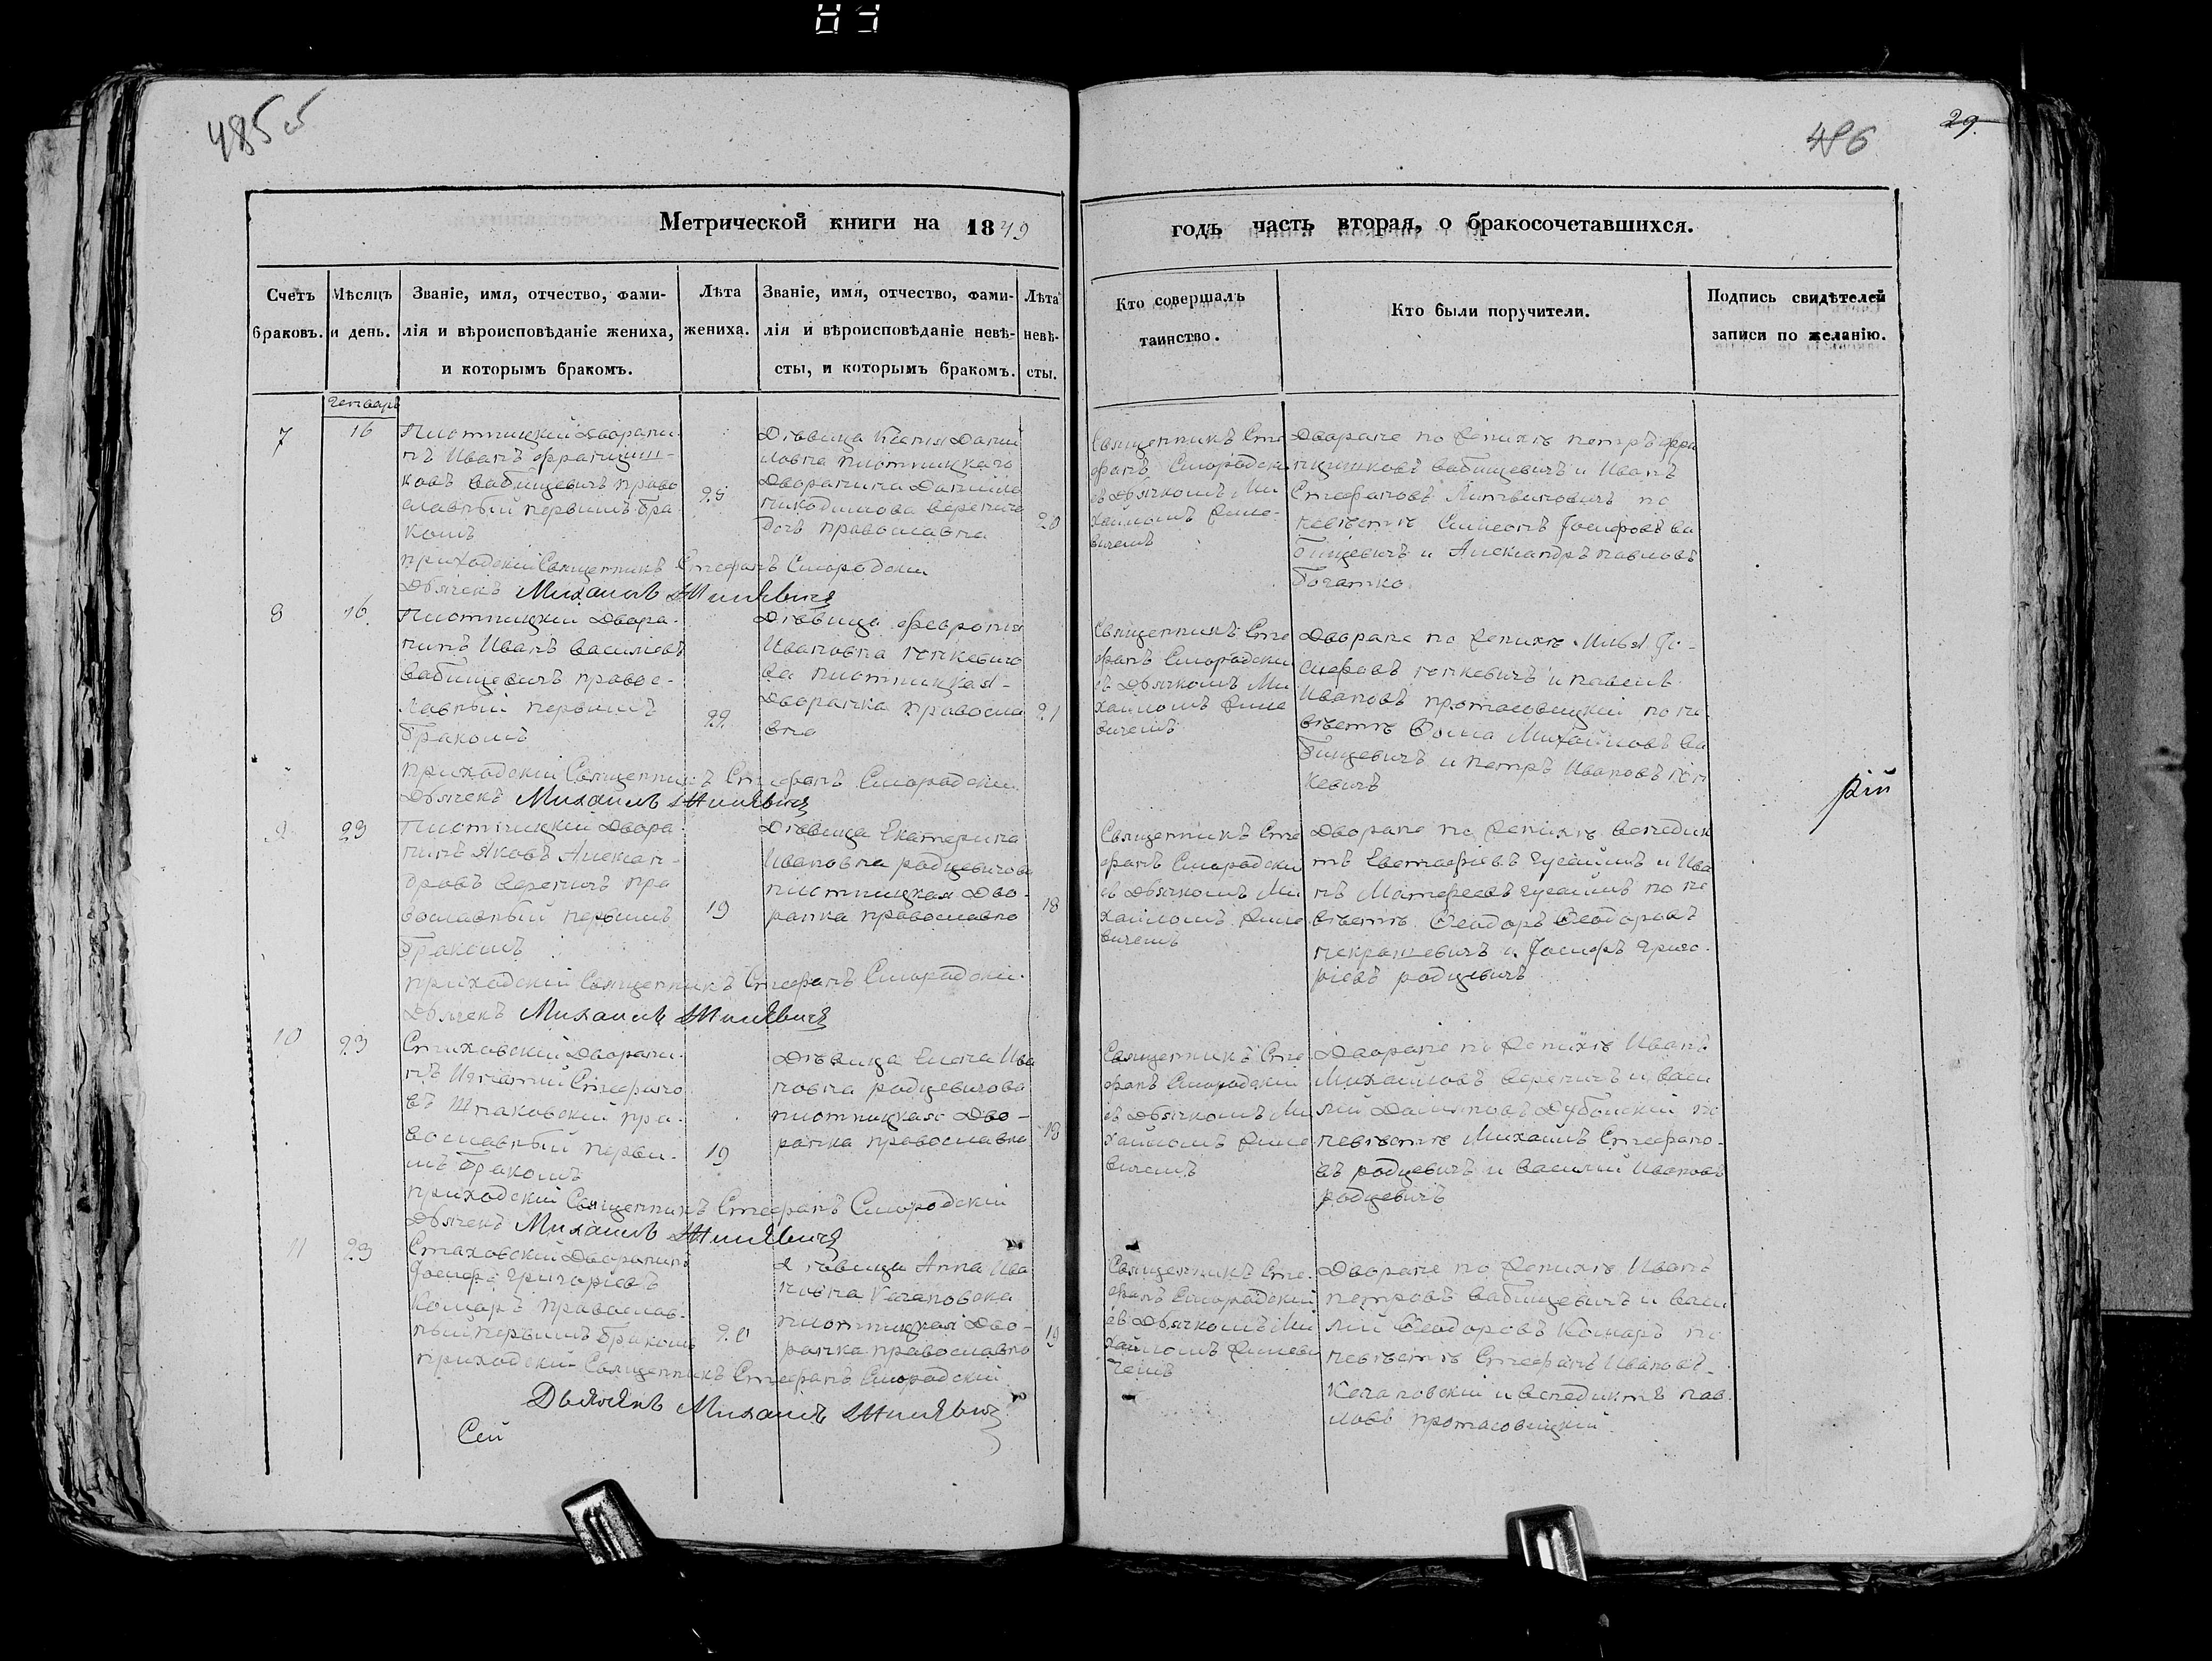 485 об
486
29.
Метрической книги на 1849
годъ часть вторая, о бракосочетавшихся.
Счетъ браковъ.
Мѣсяцъ и день.
Званіе, имя, отчество, фами-
лія и вѣроисповѣданіе жениха,
и которымъ бракомъ.
Лѣта жениха.
Званіе, имя, отчество, фами-
лія и вѣроисповѣданіе невѣ-
сты, и которымъ бракомъ.
Лѣта невѣ-
сты.
Кто совершалъ
таинство.
Кто были поручители.
Подпись свидѣтелей
записи по желанію.
Генварь
7
16
Плотницкій Дворани-
нъ Иванъ Францишь-
ковъ Бабицевичъ право
славный первымъ бра-
комъ
25
Дѣвица Дании
ловна Плотницкаго
Дворанина Даниила
Никодимова Веренича
дочь православна
20
Священникъ Сте
фанъ Смородски
съ Дьячкомъ Ми
хаиломъ Жиле-
вичемъ
Дворане по женихѣ Петръ Фра
нцишковъ Бабицевичъ и Иванъ
Стефановъ Литвиновичъ по
невѣстѣ Симеонъ Іосифовъ Ба
бицевичъ и Александръ Павловъ
Богатко
приходскій Священникъ Стефанъ Смородскій
Дьячекъ Михаилъ Жилевичъ
8
16
Плотницкій Двора-
нинъ Иванъ Василіевъ
Бабицевичъ правос-
лавный первымъ
бракомъ
22
Дѣвица Феврониа
Ивановна Гонкевичо
ва Плотницкая
Дворанка правосла
вна
21
Священникъ Сте
фанъ Смородски
съ Дьячкомъ Ми
хаиломъ Жиле
вичемъ
Дворане по женихѣ Илья Іо-
сифовъ Гонкевичъ и Павелъ
Ивановъ Протасовицкій по не
вѣстѣ Фома Михайловъ Ба
бицевичъ и Петръ Ивановъ Гон
кевичъ
приходскій Священникъ Стефанъ Смородскій
Дьячекъ Михаилъ Жилевичъ
рій
9
23
Плотницкій Двора-
нинъ Яковъ Алексан-
дровъ Вереничъ пра
вославный первымъ
бракомъ
19
Дѣвица Екатерина
Ивановна Родцевичова
Плотницкая Дво-
ранка православна
18
Священникъ Сте
фанъ Смородски
съ Дьячкомъ Ми
хаиломъ Жиле
вичемъ
Дворане по женихѣ Венедик
тъ Евстафіевъ и Ива
нъ Матфеевъ по не
вѣстѣ Феодоръ Феодоровъ
Некрашевичъ и Іосифъ Григо-
ріевъ Родцевичъ
приходскій Священникъ Стефанъ Смородскій
Дьячекъ Михаилъ Жилевичъ
10
23
Стаховскій Дворани-
нъ Игнатій Стефано
въ Шпаковскій пра-
вославный первы-
мъ бракомъ
19
Дѣвица Елена Ива
новна Родцевичова
Плотницкая Дво-
ранка православна
18
Священникъ Сте
фанъ Смородскій
съ Дьячкомъ Ми
хаиломъ Жиле
вичемъ
Дворане по женихѣ Иванъ
Михайловъ Вереничъ и Васи
лій Даміановъ Дубойскій по
невѣстѣ Михаилъ Стефано-
въ Родцевичъ и Василій Ивановъ
Родцевичъ
приходскій Священникъ Стефанъ Смородскій
Дьячекъ Михаилъ Жилевичъ
11
23
Стаховскій Дворанинъ
Іосифъ Григоріевъ
Комаръ православ-
ный первымъ бракомъ
20
Дѣвица Анна Ива
новна Качановска
Плотницкая Дво-
ранка православна
19
Священникъ Сте-
фанъ Смородскій
съ Дьячкомъ Ми
хаиломъ Жилеви
чемъ
Дворане по женихѣ Иванъ
Петровъ Бабицевичъ и Васи
лій Феодоровъ Комаръ по
невѣстѣ Стефанъ Ивановъ
Качановскій и Венедиктъ Пав-
ловъ Протасовицкій
приходскій Священникъ Стефанъ Смородскій
Дьячекъ Михаилъ Жилевичъ
Сей